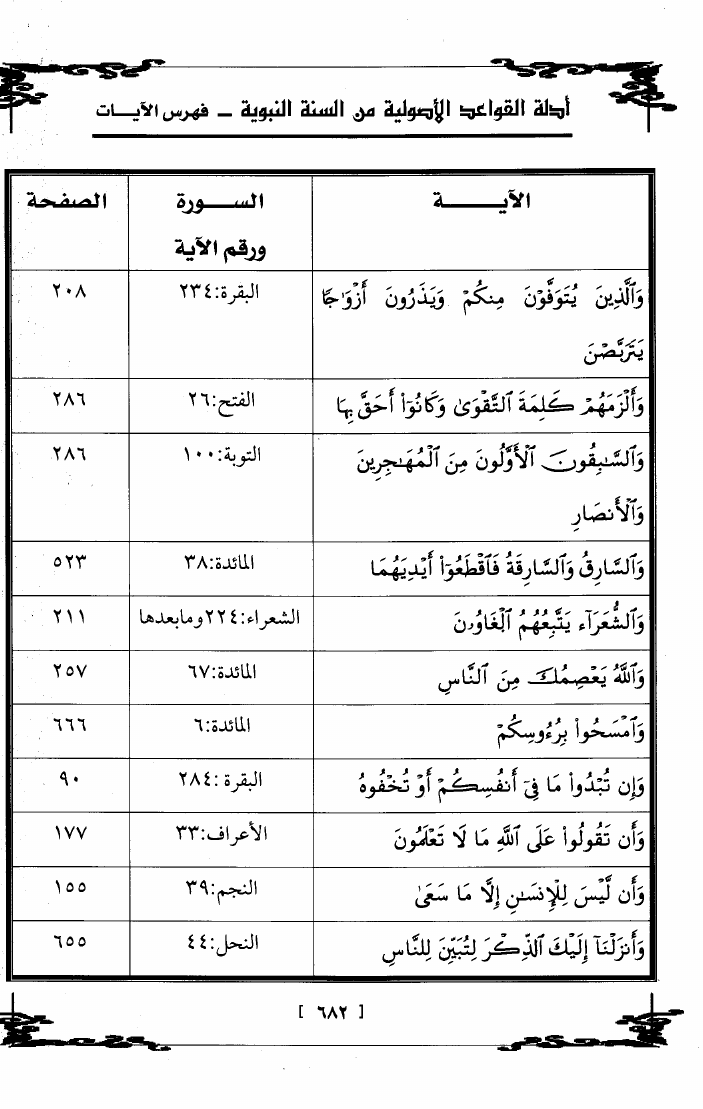 أدلة القواعد الأصولية من السنة النبوية – فهرس الآيـــات
الآيـــــــة السـورة الصفحة
ورقم الآية
وَٱلَّذِينَ يُتَوَفَّوْنَ مِنكُمْ وَيَذَرُونَ أَزْوَٰجًا البقرة:٢٣٤ ٢٠٨
يَتَرَبَّصْنَ
وَأَلْزَمَهُمْ كَلِمَةَ ٱلتَّقْوَىٰ وَكَانُوٓا۟ أَحَقَّ بِهَا الفتح:٢٦ ٢٨٦
وَٱلسَّٰبِقُونَ ٱلْأَوَّلُونَ مِنَ ٱلْمُهَٰجِرِينَ التوبة:١٠٠ ٢٨٦
وَٱلْأَنصَارِ
وَٱلسَّارِقُ وَٱلسَّارِقَةُ فَٱقْطَعُوٓا۟ أَيْدِيَهُمَا المائدة:٣٨ ٥٢٣
وَٱلشُّعَرَآءُ يَتَّبِعُهُمُ ٱلْغَاوُۥنَ الشعراء:٢٢٤ومابعدها ٢١١
وَٱللَّهُ يَعْصِمُكَ مِنَ ٱلنَّاسِ المائدة:٦٧ ٢٥٧
وَٱمْسَحُوا۟ بِرُءُوسِكُمْ المائدة:٦ ٦٦٦
وَإِن تُبْدُوا۟ مَا فِىٓ أَنفُسِكُمْ أَوْ تُخْفُوهُ البقرة:٢٨٤ ٩٠
وَأَن تَقُولُوا۟ عَلَى ٱللَّهِ مَا لَا تَعْلَمُونَ الأعراف:٣٣ ١٧٧
وَأَن لَّيْسَ لِلْإِنسَٰنِ إِلَّا مَا سَعَىٰ النجم:٣٩ ١٥٥
وَأَنزَلْنَآ إِلَيْكَ ٱلذِّكْرَ لِتُبَيِّنَ لِلنَّاسِ النحل:٤٤ ٦٥٥
[ ٦٨٢ ]